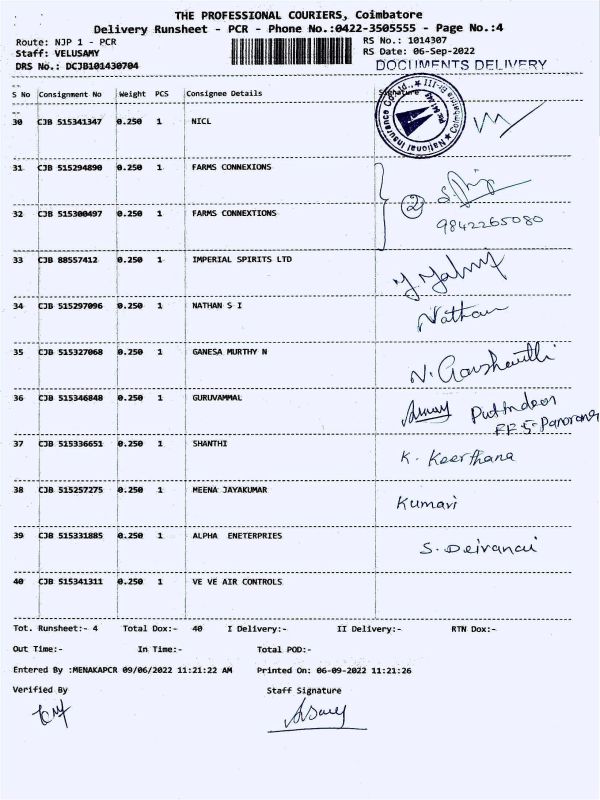 THE PROFESSIONAL COURIERS, Coimbatore
Delivery Runsheet - PCR - Phone No.:0422-3505555 - Page No.:4
Route: NJP 1 - PCR
RS No.: 1014307
Staff: VELUSAMY
RS Date: 06-Sep-2022
DRS No.: DCJB101430704
DOCUMENTS DELIVERY
S No Consignment No Weight PCS Consignee Details Signature
National Insurance Co. Ltd.,
30 CJB 515341347 0.250 1 NICL
31 CJB 515294890 0.250 1 FARMS CONNEXIONS
2
32 CJB 515300497 0.250 1 FARMS CONNEXTIONS
9842265080
33 CJB 88557412 0.250 1 IMPERIAL SPIRITS LTD
34 CJB 515297096 0.250 1 NATHAN S I Nathan
35 CJB 515327068 0.250 1 GANESA MURTHY N
36 CJB 515346848 0.250 1 GURUVAMMAL
37 CJB 515336651 0.250 1 SHANTHI K. Keerthana
38 CJB 515257275 0.250 1 MEENA JAYAKUMAR Kumari
39 CJB 515331885 0.250 1 ALPHA ENETERPRIES S. Deivanai
40 CJB 515341311 0.250 1 VE VE AIR CONTROLS
Tot. Runsheet:- 4 Total Dox:- 40 I Delivery:- II Delivery:- RTN Dox:-
Out Time:- In Time:- Total POD:-
Entered By :MENAKAPCR 09/06/2022 11:21:22 AM Printed On: 06-09-2022 11:21:26
Verified By Staff Signature